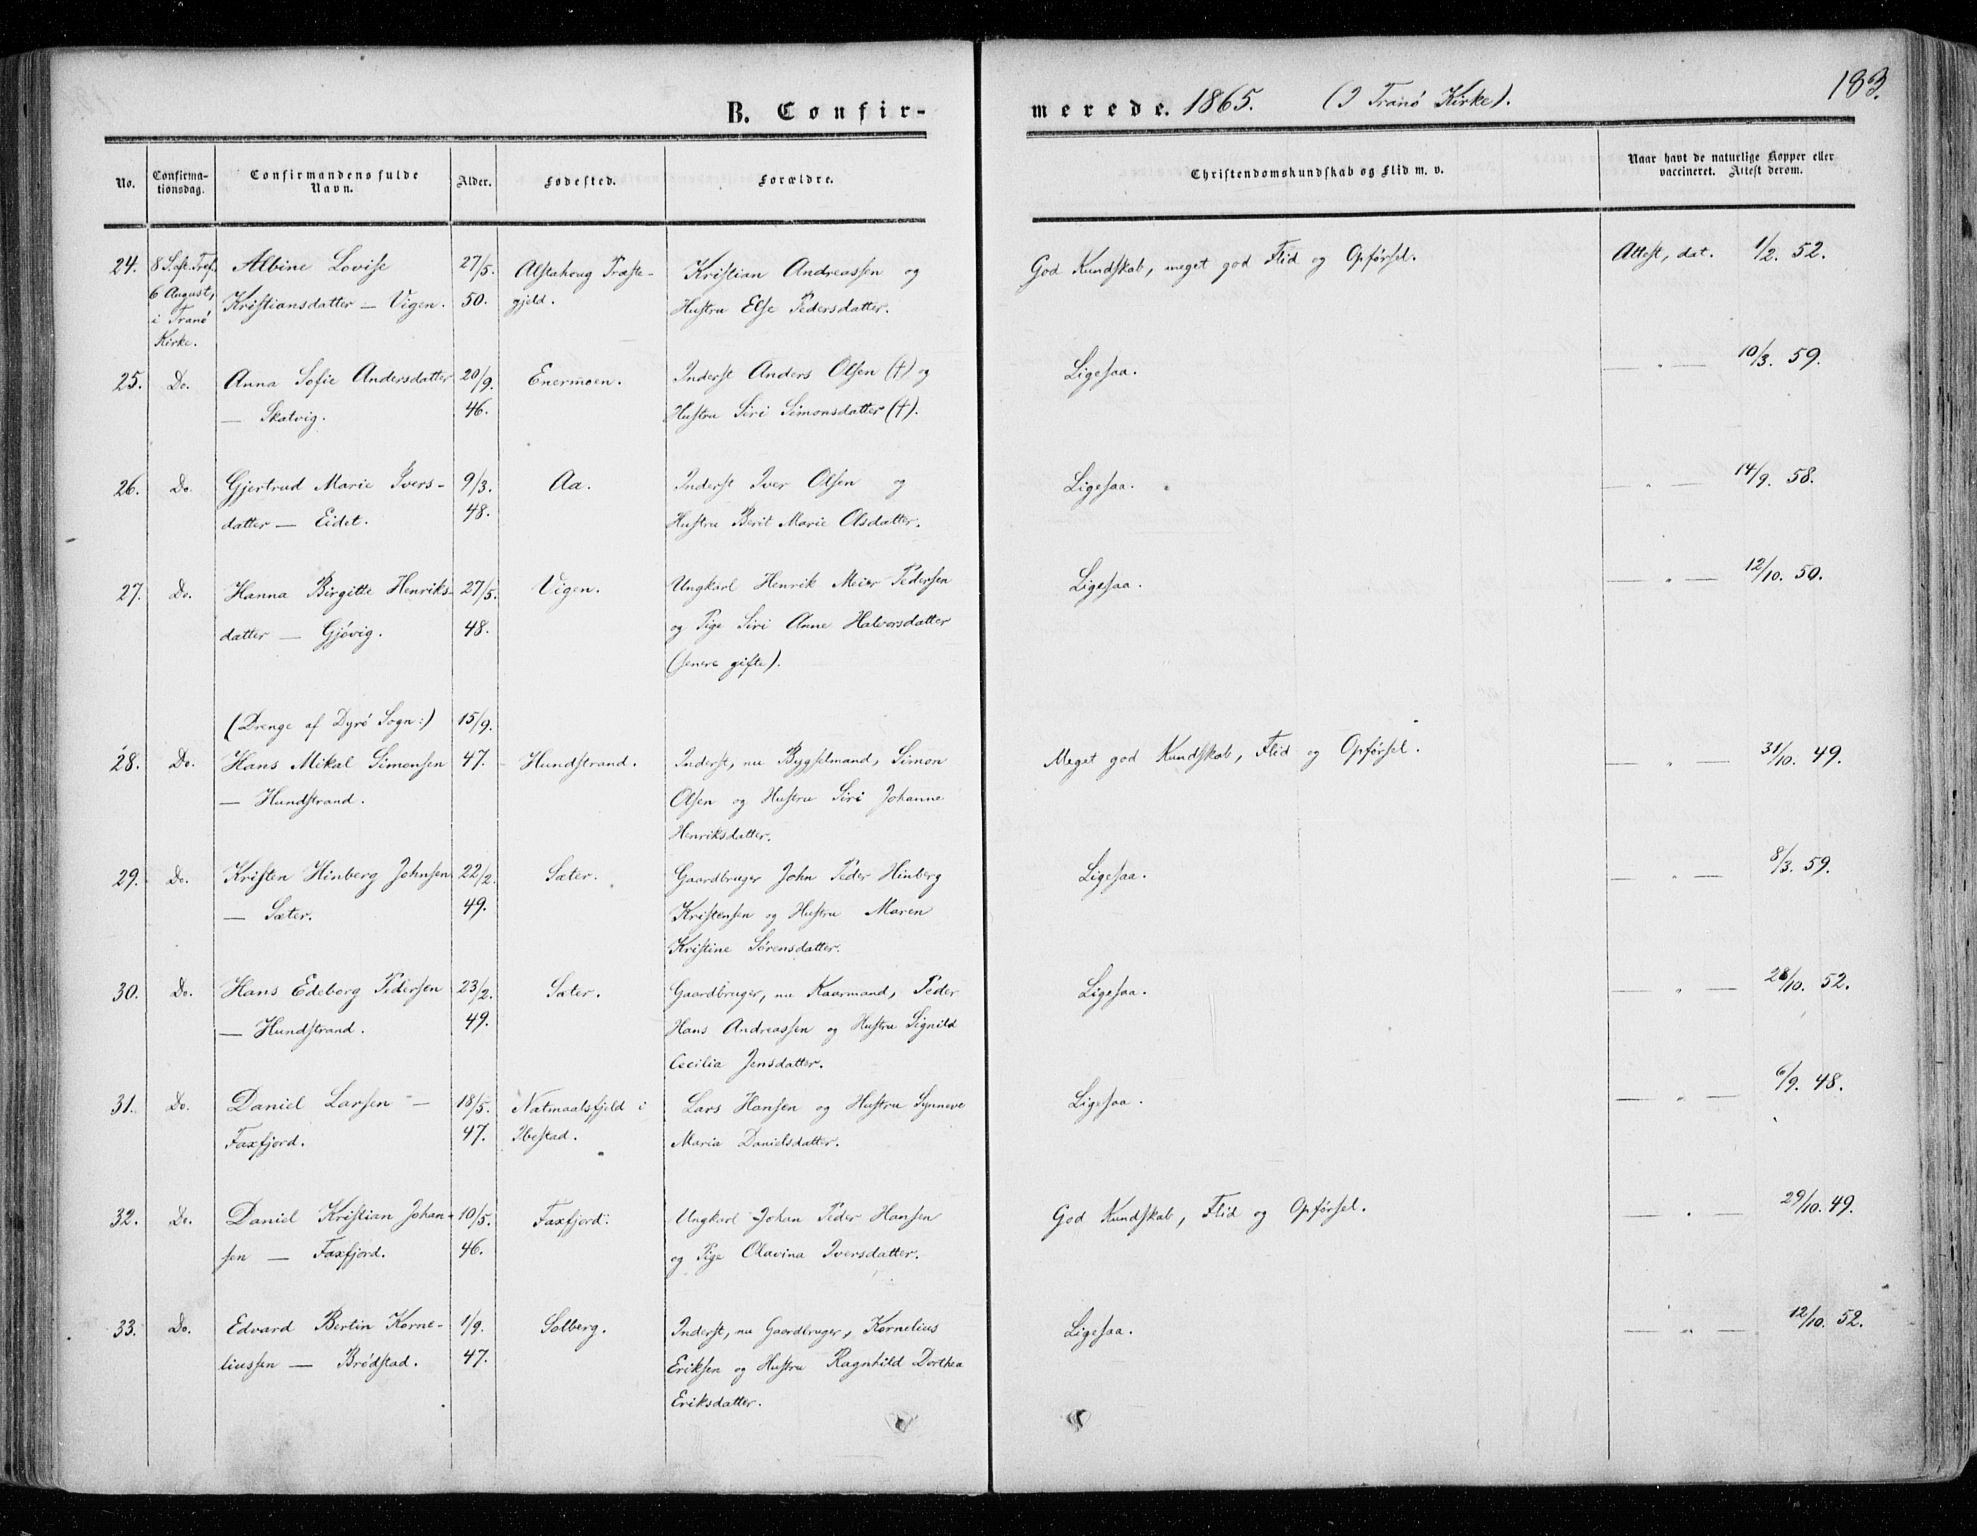 183.
B. Confir-
merede. 1865. (I Tranø Kirke).
No.
Confirma-
tionsdag.
Confirmandens fulde
Navn.
Alder.
Fødested.
Forældre.
Christendomskundskab og Flid m. v.
Naar havt de naturlige Kopper eller
vaccineret. Attest derom.
24. 8 S. eft. Tref. Albine Lovise 27/5. Alstahoug Præste- Kristian Andreassen og God Kundskab, meget god Flid og Opførsel. Attest, dat. 1/2. 52.
6 August, Kristiansdatter — Vigen. 50. gjeld. Hustru Else Pedersdatter.
i Tranø
Kirke.
25. Do. Anna Sofie Andersdatter 20/9. Enermoen. Inderst Anders Olsen (†) og Ligesaa. — " — 10/3. 59.
— Skatvig. 46. Hustru Siri Simonsdatter (†).
26. Do. Gjertrud Marie Ivers- 9/3. Aa. Inderst Iver Olsen og Ligesaa. — " — 14/9. 58.
datter — Eidet. 48. Hustru Berit Marie Olsdatter.
27. Do. Hanna Birgitte Henriks- 27/5. Vigen. Ungkarl Henrik Meier Pedersen Ligesaa. — " — 12/10. 50.
datter — Gjøvig. 48. og Pige Siri Anne Halvorsdatter
(senere gifte).
(Drenge af Dyrø Sogn:) 15/9.
28. Do. Hans Mikal Simonsen 47. Hundstrand. Inderst, nu Bygselmand, Simon Meget god Kundskab, Flid og Opførsel. — " — 31/10. 49.
— Hundstrand. Olsen og Hustru Siri Johanne
Henriksdatter.
29. Do. Kristen Hinberg Johnsen 22/2. Sæter. Gaardbruger John Peder Hinberg Ligesaa. — " — 8/3. 59.
— Sæter. 49. Kristensen og Hustru Maren
Kristine Sørensdatter.
30. Do. Hans Edeborg Pedersen 23/2. Sæter. Gaardbruger, nu Kaarmand, Peder Ligesaa. — " — 28/10. 52.
— Hundstrand. 49. Hans Andreassen og Hustru Signild
Cecilia Jensdatter.
31. Do. Daniel Larsen — 18/5. Natmaalsfjeld i Lars Hansen og Hustru Synneve Ligesaa. — " — 6/9. 48.
Faxfjord. 47. Ibestad. Maria Danielsdatter.
32. Do. Daniel Kristian Johan- 10/5. Faxfjord. Ungkarl Johan Peder Hansen God Kundskab, Flid og Opførsel. — " — 29/10. 49.
sen — Faxfjord. 46. og Pige Olavina Iversdatter.
33. Do. Edvard Bertin Korne- 1/9. Solberg. Inderst, nu Gaardbruger, Kornelius Ligesaa. — " — 12/10. 52.
liussen — Brødstad. 47. Eriksen og Hustru Ragnhild Dorthea
Eriksdatter.